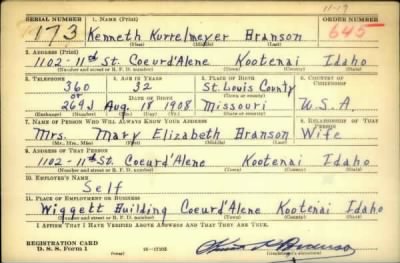 11-19
SERIAL NUMBER 1. NAME (Print) ORDER NUMBER
173 Kenneth Kurrelmeyer Branson 645
(First) (Middle) (Last)
2. ADDRESS (Print)
1102-11th St. Coeurd'Alene Kootenai Idaho
(Number and street or R. F. D. number) (Town) (County) (State)
3. TELEPHONE 4. AGE IN YEARS 5. PLACE OF BIRTH 6. COUNTRY OF CITIZENSHIP
360 32 St. Louis County
DATE OF BIRTH (Town or county)
or 269J Aug. 18, 1908 Missouri U.S.A.
(Exchange) (Number) (Mo.) (Day) (Yr.) (State or country)
7. NAME OF PERSON WHO WILL ALWAYS KNOW YOUR ADDRESS 8. RELATIONSHIP OF THAT PERSON
Mrs. Mary Elizabeth Branson Wife
(Mr., Mrs., Miss) (First) (Middle) (Last)
9. ADDRESS OF THAT PERSON
1102-11th St. Coeurd'Alene Kootenai Idaho
(Number and street or R. F. D. number) (Town) (County) (State)
10. EMPLOYER'S NAME
Self
11. PLACE OF EMPLOYMENT OR BUSINESS
Wiggett Building Coeurd'Alene Kootenai Idaho
(Number and street or R. F. D. number) (Town) (County) (State)
I AFFIRM THAT I HAVE VERIFIED ABOVE ANSWERS AND THAT THEY ARE TRUE.
REGISTRATION CARD
D. S. S. Form 1 16-17105
(Registrant's signature)